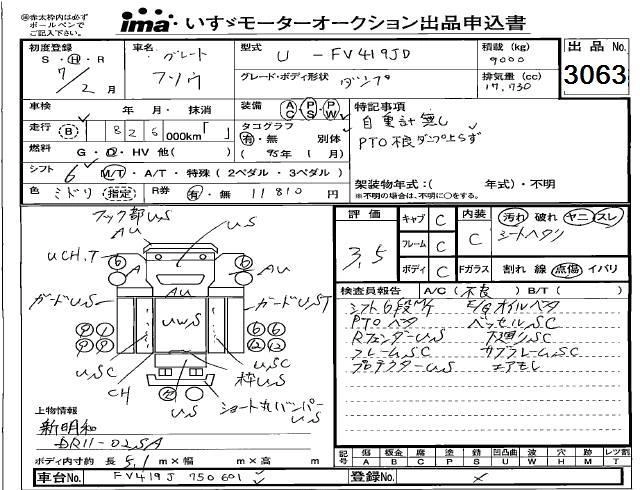 ㊟赤太枠内は必ず
ボールペンで
ご記入下さい。
ima いすゞモーターオークション出品申込書
初度登録 車名 グレート 型式 U - FV419JD 積載(kg) 9000 出品No.
S・H・R 7/2月 フソウ グレード・ボディ形状 ダンプ 排気量(cc) 17,730 3063
車検 年 月・抹消 装備 AC・PS・PW 特記事項
走行 (B) 826,000km「 」 タコグラフ 有・無 別体 自重計無し
(95年 1月) PTO不良ダンプ上らず
燃料 G・D・HV 他( )
シフト 6 M/T・A/T・特殊(2ペダル・3ペダル) 架装物年式:( 年式)・不明
色 ミドリ (指定) R券 有・無 11810 円 *不明の場合は、不明に○をする。
フック部U,S
AU U.S
UCH,T 6 6
A A AU
AU
ガードU,S ガードU,ST
UWS
U,SC U,SC
CH 枠U,S
U.S ショート丸バンパー
U.S
上物情報
新明和
DR11-02SA
ボディ内寸約 長 5.1 m×幅 m×高 m
評価 3,5 キャブ C 内装 C 汚れ 破れ ヤニ スレ
シートヘタリ
フレーム C
ボディ C Fガラス 割れ 線 点傷 イバリ
検査員報告 A/C(不良) B/T( )
シフト6段M/T E/Gオイルベタ
PTOベタ ベッセルSC
RフェンダーU.S 下廻りSC
フレームU,SC サブフレームSC
プロテクターU.S エアモレ
記号 傷A 板金B 腐C 塗P 錆S 凹凸曲U 波W 穴H 跡M レツ割T
車台No. FV419J 750601 登録No. ×